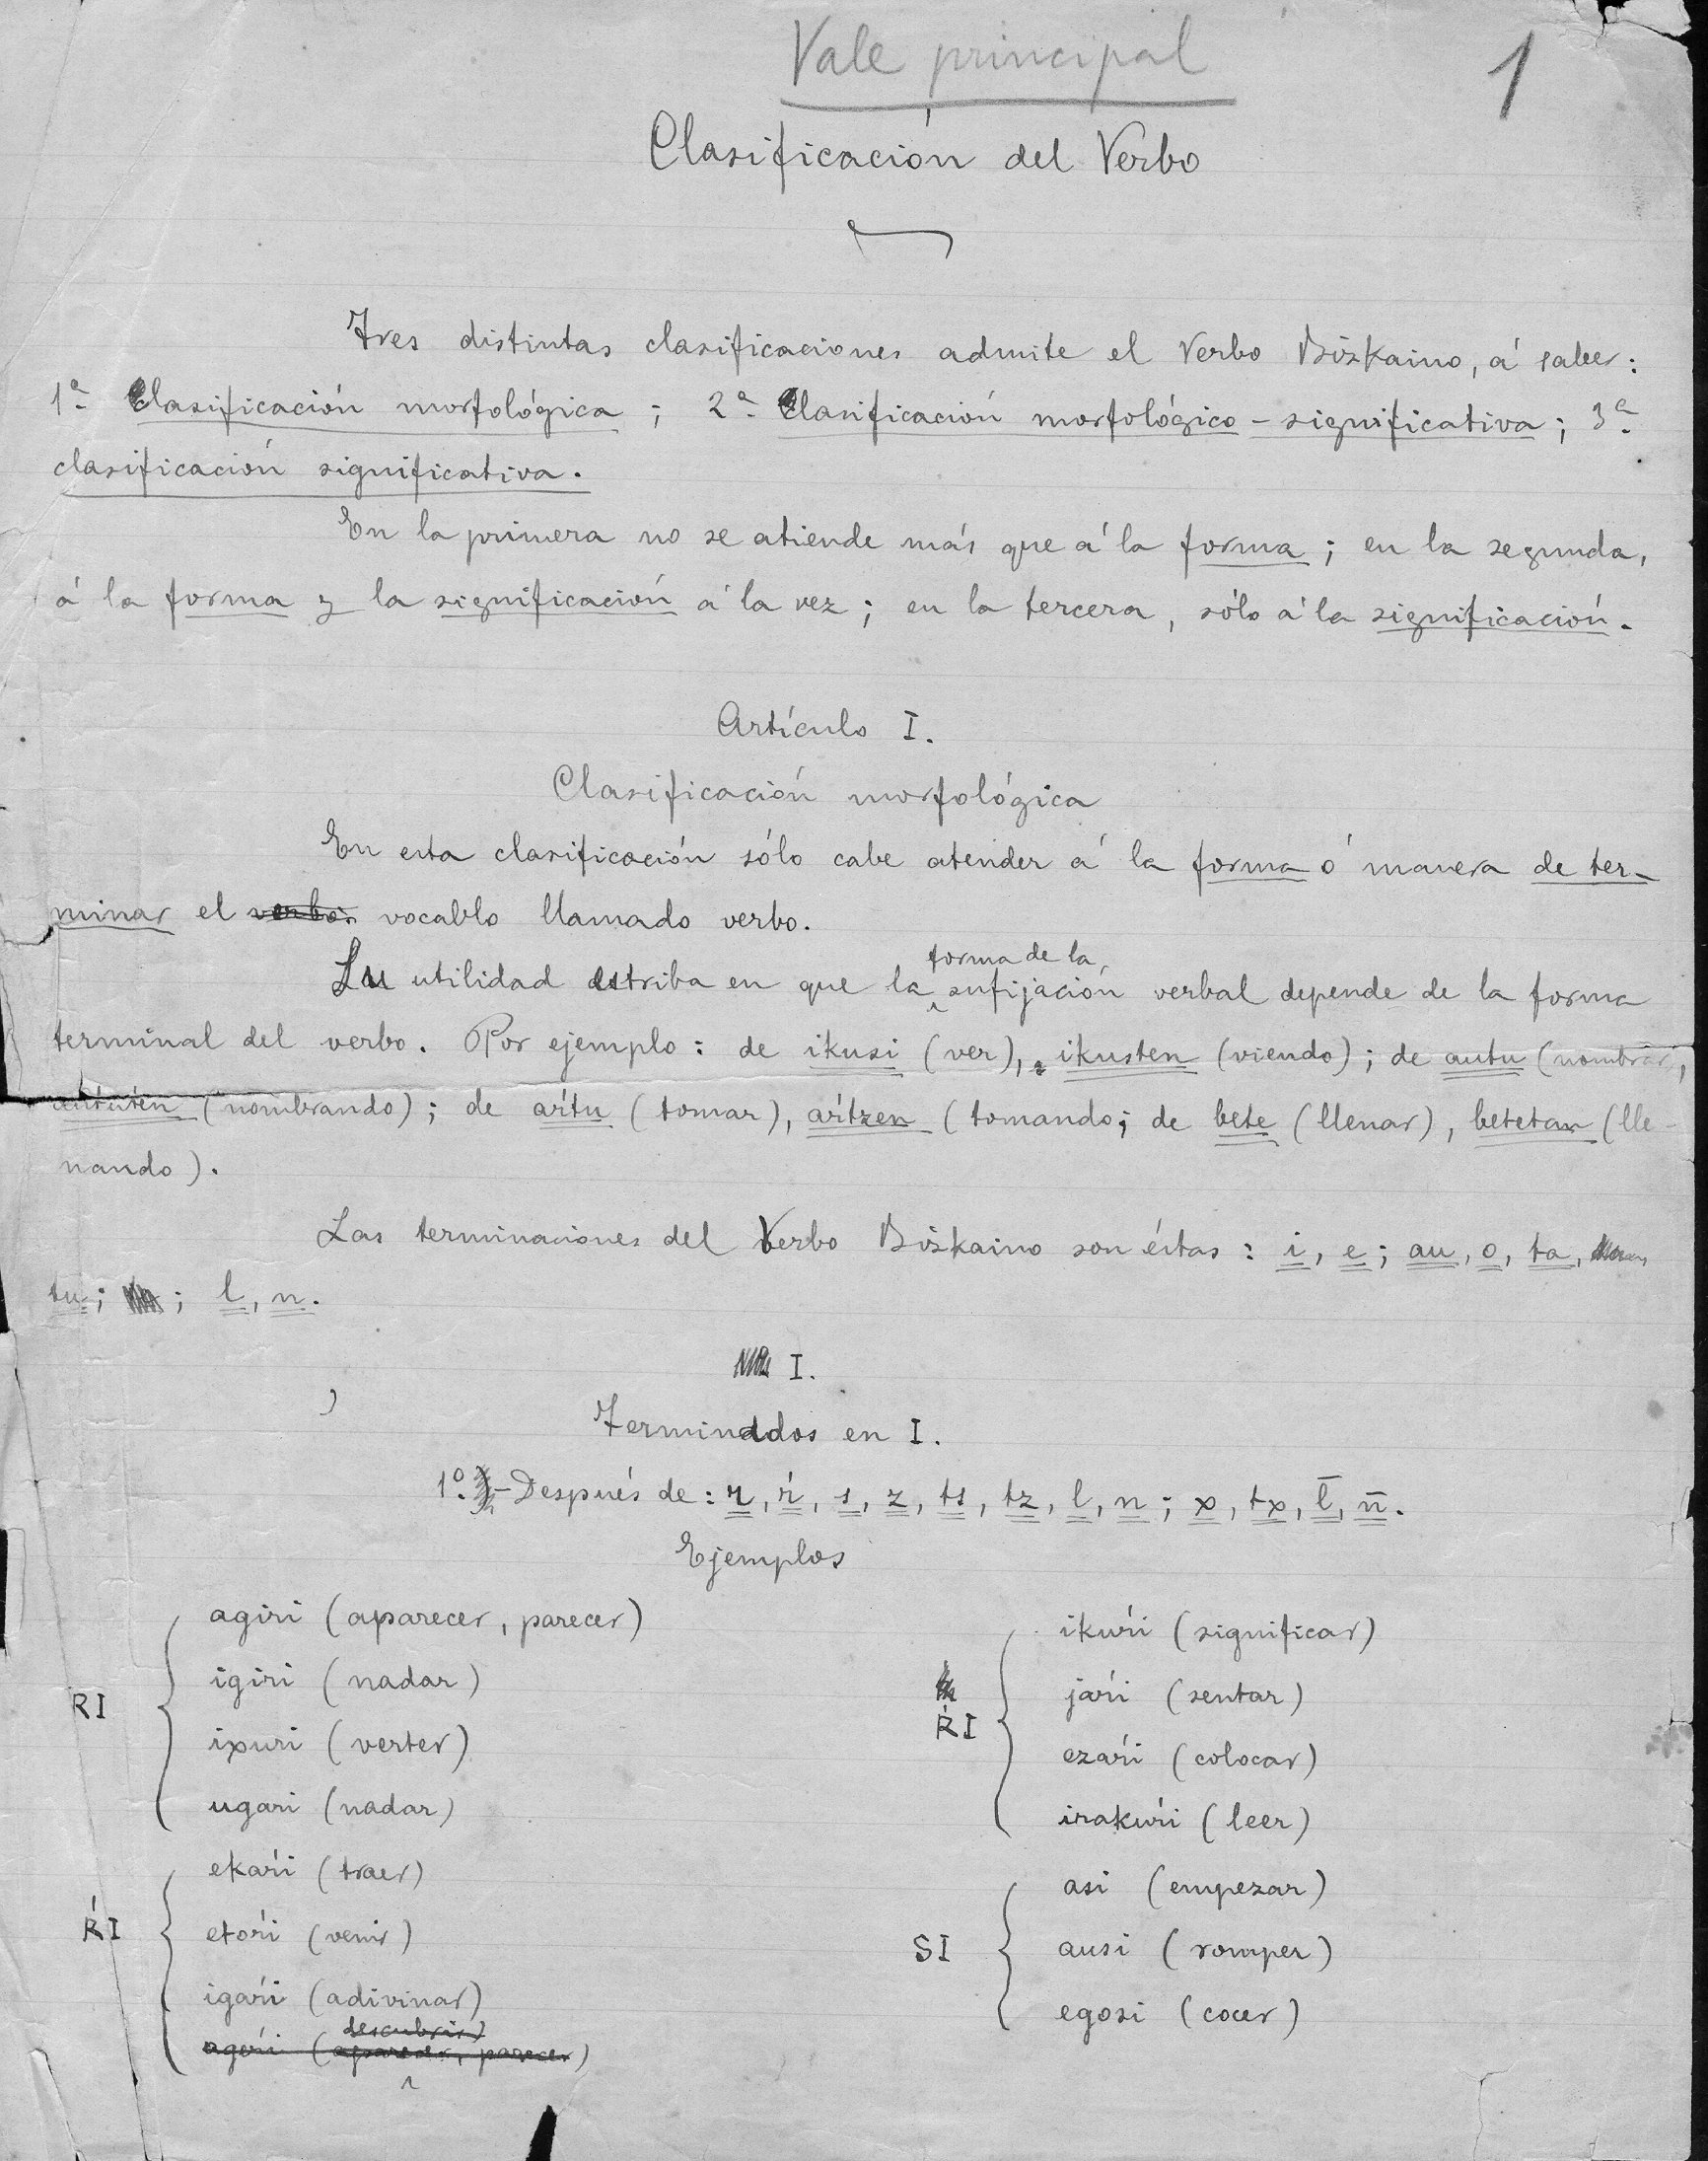 Vale principal
1
Clasificación del Verbo
Tres distintas clasificaciones admite el Verbo Bizkaino, á saber:
1ª Clasificación morfológica; 2ª Clasificación morfológico-significativa; 3ª
clasificación significativa.
En la primera no se atiende más que á la forma; en la segunda,
á la forma y la significación á la vez; en la tercera, sólo á la significación.
Artículo I.
Clasificación morfológica
En esta clasificación sólo cabe atender á la forma ó manera de ter-
minar el verbo vocablo llamado verbo.
Su utilidad estriba en que la forma de la sufijación verbal depende de la forma
terminal del verbo. Por ejemplo: de ikusi (ver), ikusten (viendo); de autu (nombrar),
aututen (nombrando); de aŕtu (tomar), aŕtzen (tomando; de bete (llenar), betetan (lle-
nando).
Las terminaciones del Verbo Bizkaino son éstas: i, e; au, o, ta,
tu; ; l, n.
I.
Terminados en I.
1º.-Después de: r, ŕ, s, z, ts, tz, l, n; x, tx, l̄, n̄.
Ejemplos
RI
agiri (aparecer, parecer)
igiri (nadar)
ixuri (verter)
ugari (nadar)
ŔI
ekaŕi (traer)
etoŕi (venir)
igaŕi (adivinar)
descubrir)
ageŕi (aparecer, parecer)
ŔI
ikuŕi (significar)
jaŕi (sentar)
ezaŕi (colocar)
irakuŕi (leer)
SI
asi (empezar)
ausi (romper)
egosi (cocer)